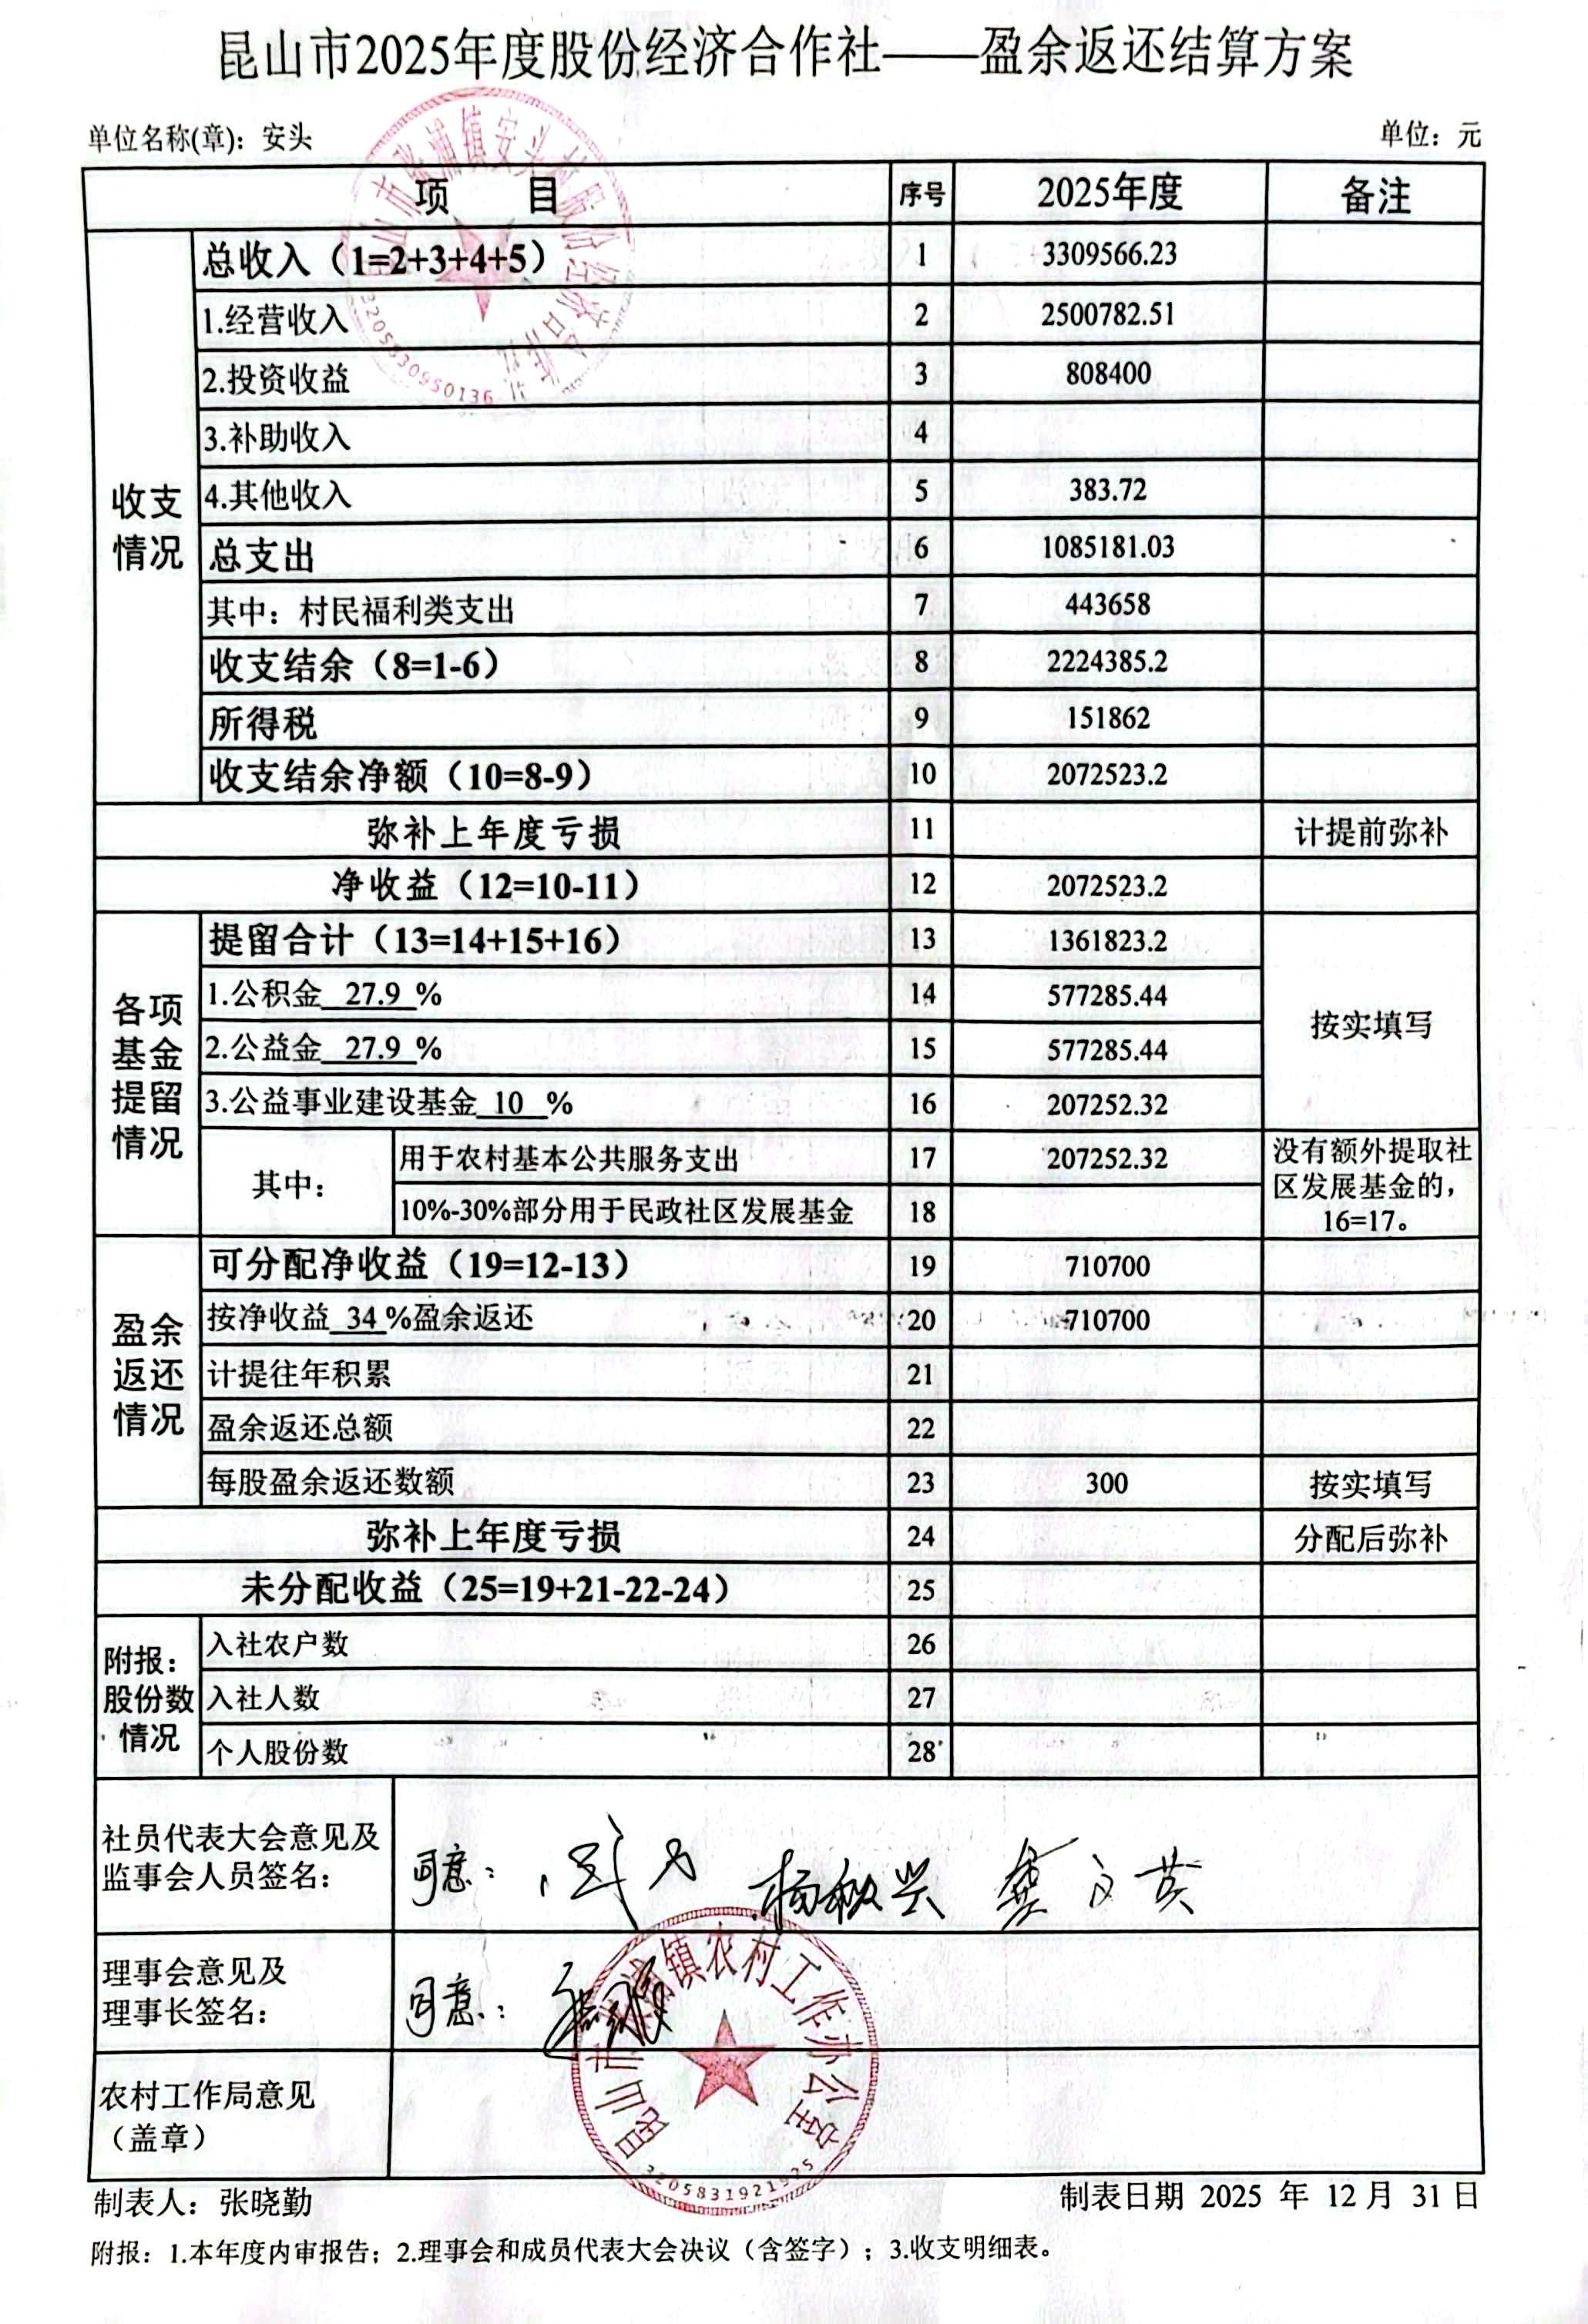 昆山市2025年度股份经济合作社——盈余返还结算方案
单位名称(章)：安头 单位：元
项 目 序号 2025年度 备注
收支情况
总收入（1=2+3+4+5） 1 3309566.23
1.经营收入 2 2500782.51
2.投资收益 3 808400
3.补助收入 4
4.其他收入 5 383.72
总支出 6 1085181.03
其中：村民福利类支出 7 443658
收支结余（8=1-6） 8 2224385.2
所得税 9 151862
收支结余净额（10=8-9） 10 2072523.2
弥补上年度亏损 11 计提前弥补
净收益（12=10-11） 12 2072523.2
各项基金提留情况
提留合计（13=14+15+16） 13 1361823.2
1.公积金 27.9 % 14 577285.44
按实填写
2.公益金 27.9 % 15 577285.44
3.公益事业建设基金 10 % 16 207252.32
其中：
用于农村基本公共服务支出 17 207252.32
没有额外提取社区发展基金的，16=17。
10%-30%部分用于民政社区发展基金 18
盈余返还情况
可分配净收益（19=12-13） 19 710700
按净收益 34 %盈余返还 20 710700
计提往年积累 21
盈余返还总额 22
每股盈余返还数额 23 300 按实填写
弥补上年度亏损 24 分配后弥补
未分配收益（25=19+21-22-24） 25
附报：股份数情况
入社农户数 26
入社人数 27
个人股份数 28
社员代表大会意见及
监事会人员签名：
同意：
理事会意见及
理事长签名：
同意：
农村工作局意见
（盖章）
镇农村工作办公室
昆山市
3205831921925
3205830950136
制表人：张晓勤 制表日期 2025 年 12 月 31 日
附报：1.本年度内审报告；2.理事会和成员代表大会决议（含签字）；3.收支明细表。